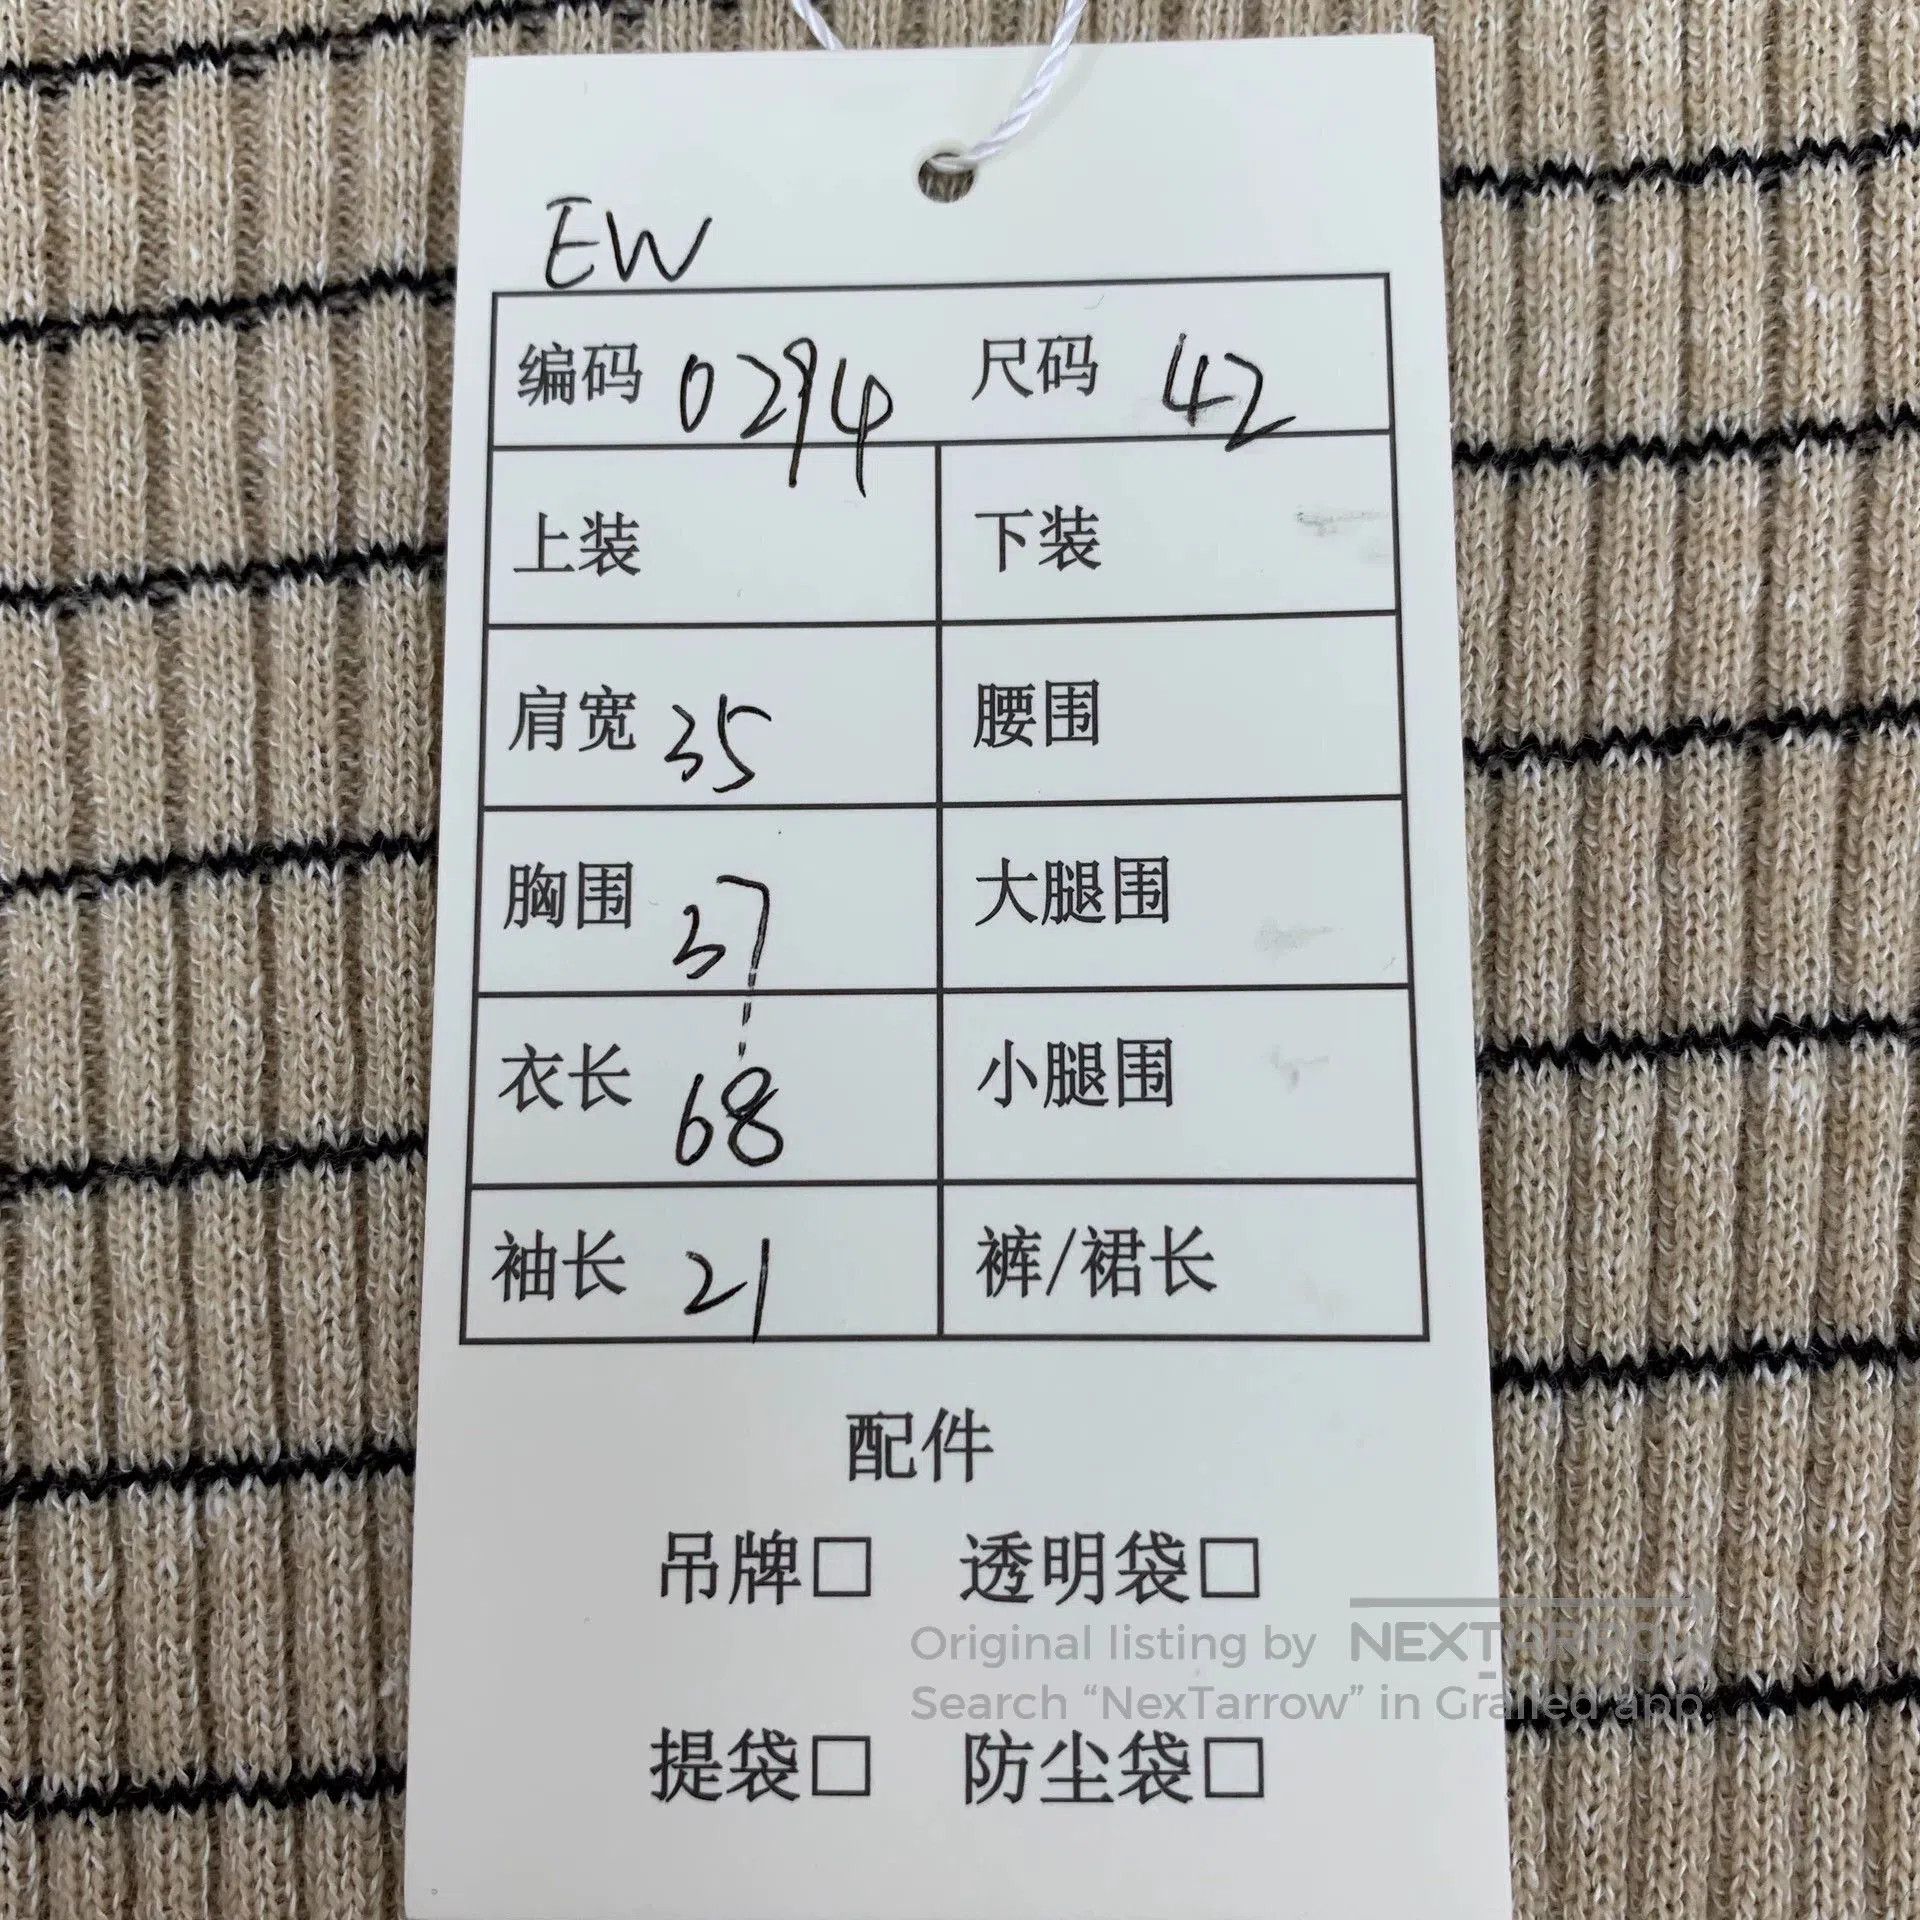 EW
编码 0294 尺码 42
上装 下装
肩宽 35 腰围
胸围 37 大腿围
衣长 68 小腿围
袖长 21 裤/裙长
配件
吊牌□ 透明袋□
Original listing by NEXTARROW
Search “NexTarrow” in Grailed app.
提袋□ 防尘袋□